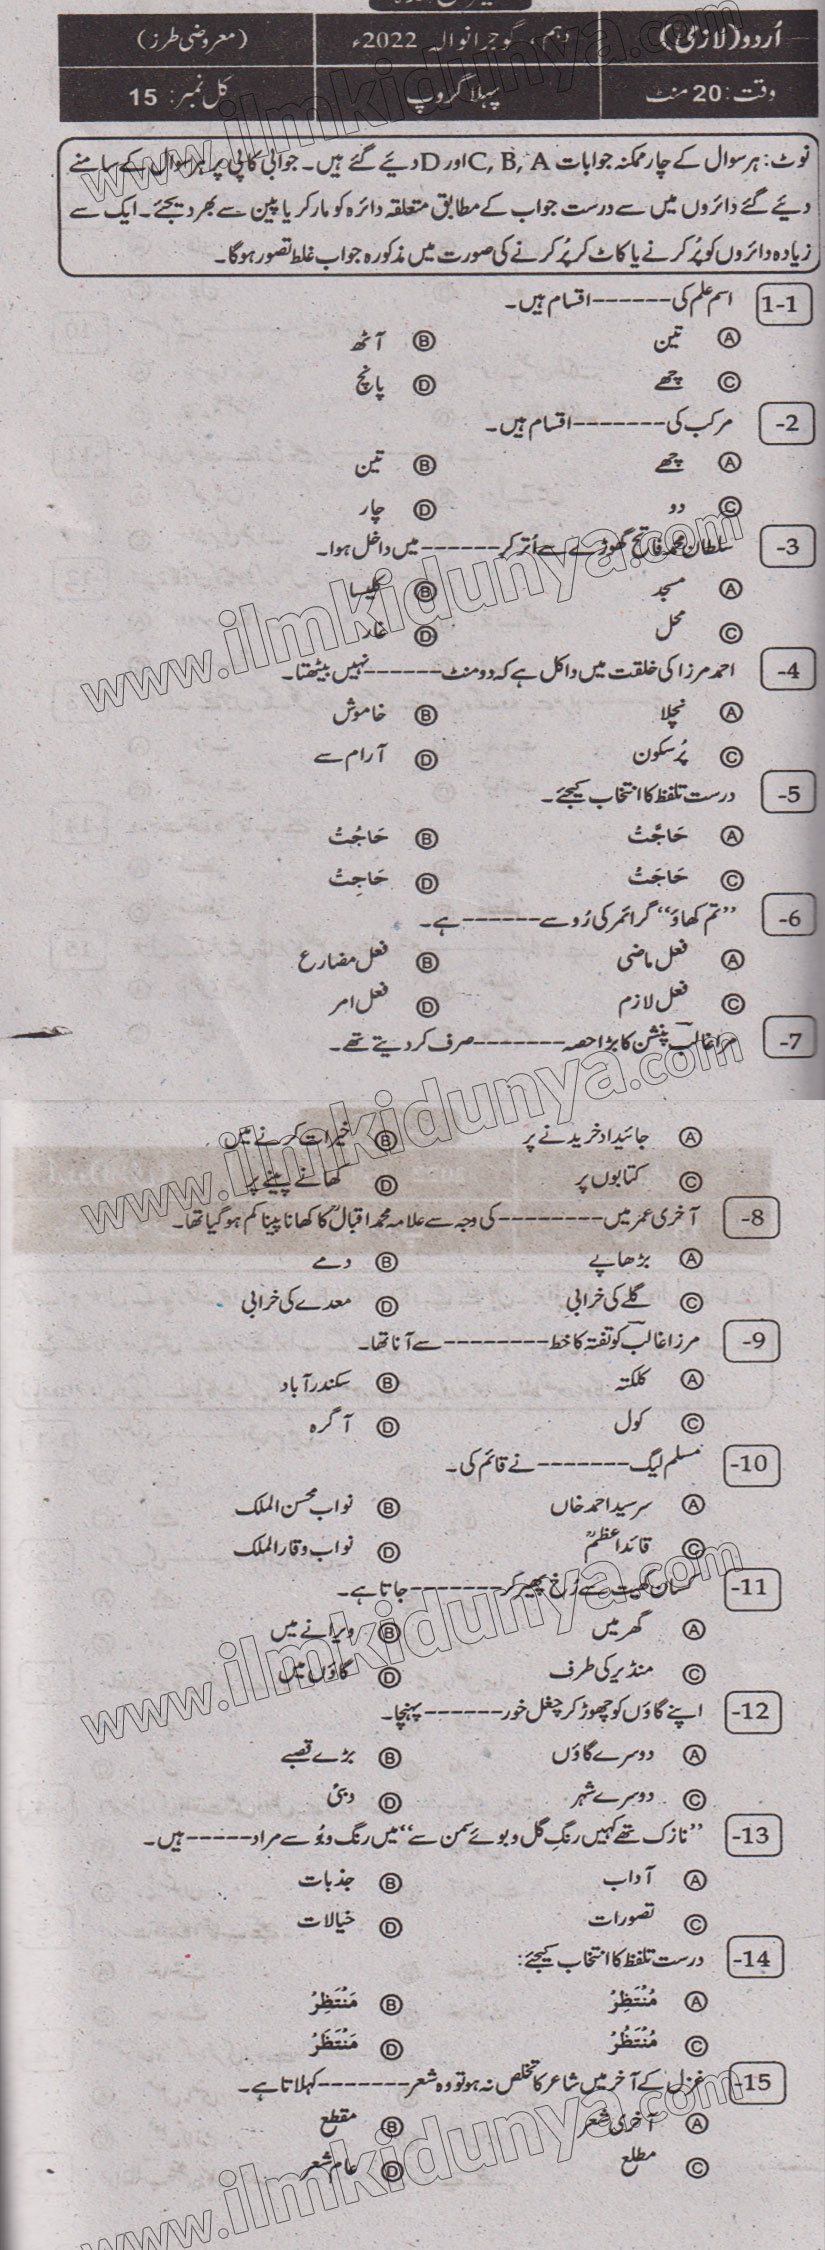 اُردو(لازمی)
دہم، گوجرانوالہ 2022ء
(معروضی طرز)
وقت: 20 منٹ
پہلا گروپ
کل نمبر: 15
نوٹ: ہر سوال کے چار ممکنہ جوابات C, B, A اور D دیئے گئے ہیں۔ جوابی کاپی پر ہر سوال کے سامنے
دیئے گئے دائروں میں سے درست جواب کے مطابق متعلقہ دائرہ کو مارکر یا پین سے بھر دیجئے۔ ایک سے
زیادہ دائروں کو پُر کرنے یا کاٹ کر پُر کرنے کی صورت میں مذکورہ جواب غلط تصور ہوگا۔
1-1 اسم علم کی ------ اقسام ہیں۔
A تین B آٹھ
C چھے D پانچ
-2 مرکب کی ------- اقسام ہیں۔
A چھے B تین
C دو D چار
-3 سلطان محمد فاتح گھوڑے سے اُتر کر ------ میں داخل ہوا۔
A مسجد B کلیسا
C محل D غار
-4 احمد مرزا کی خلقت میں داکل ہے کہ دو منٹ ------ نہیں بیٹھتا۔
A نچلا B خاموش
C پُرسکون D آرام سے
-5 درست تلفظ کا انتخاب کیجئے۔
A حَاجَّتْ B حَاجُتْ
C حَاجَتْ D حَاجِتْ
-6 ’’تم کھاؤ‘‘ گرائمر کی رُو سے ------ ہے۔
A فعل ماضی B فعل مضارع
C فعل لازم D فعل امر
-7 مرزا غالب پنشن کا بڑا حصہ ------- صرف کر دیتے تھے۔
A جائیداد خریدنے پر B خیرات کرنے میں
C کتابوں پر D کھانے پینے پر
-8 آخری عمر میں -------- کی وجہ سے علامہ محمد اقبالؒ کا کھانا پینا کم ہو گیا تھا۔
A بڑھاپے B دمے
C گلے کی خرابی D معدے کی خرابی
-9 مرزا غالب کو تفتہ کا خط -------- سے آنا تھا۔
A کلکتہ B سکندرآباد
C کول D آگرہ
-10 مسلم لیگ ------- نے قائم کی۔
A سرسید احمد خاں B نواب محسن الملک
C قائداعظمؒ D نواب وقار الملک
-11 کسان کھیت سے رُخ پھیر کر ------- جاتا ہے۔
A گھر میں B ویرانے میں
C منڈیر کی طرف D گاؤں میں
-12 اپنے گاؤں کو چھوڑ کر چغل خور ------ پہنچا۔
A دوسرے گاؤں B بڑے قصبے
C دوسرے شہر D دبئی
-13 ’’نازک تھے کہیں رنگِ گل و بوئے سمن سے‘‘ میں رنگ و بُو سے مراد ----- ہیں۔
A آداب B جذبات
C تصورات D خیالات
-14 درست تلفظ کا انتخاب کیجئے:
A مُنْتَظِرْ B مَنْتَظِرْ
C مُنْتَظُرْ D مَنْتَظَرْ
-15 غزل کے آخر میں شاعر کا تخلص نہ ہو تو وہ شعر ------- کہلاتا ہے۔
A آخری شعر B مقطع
C مطلع D عام شعر
www.ilmkidunya.com
www.ilmkidunya.com
www.ilmkidunya.com
www.ilmkidunya.com
www.ilmkidunya.com